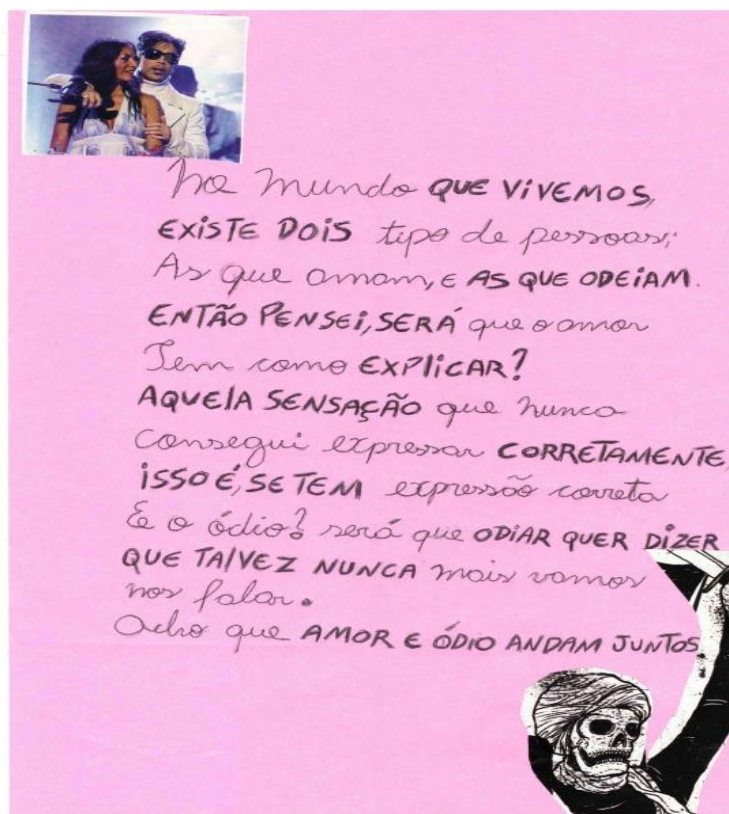 No mundo QUE VIVEMOS,
EXISTE DOIS tipo de pessoas;
As que amam, E AS QUE ODEIAM.
ENTÃO PENSEI, SERÁ que o amor
Tem como EXPLICAR?
AQUELA SENSAÇÃO que nunca
consegui expressar CORRETAMENTE,
ISSO É, SE TEM expressão correta
E o ódio? será que ODIAR QUER DIZER
QUE TALVEZ NUNCA mais vamos
nos falar.
Acho que AMOR E ÓDIO ANDAM JUNTOS